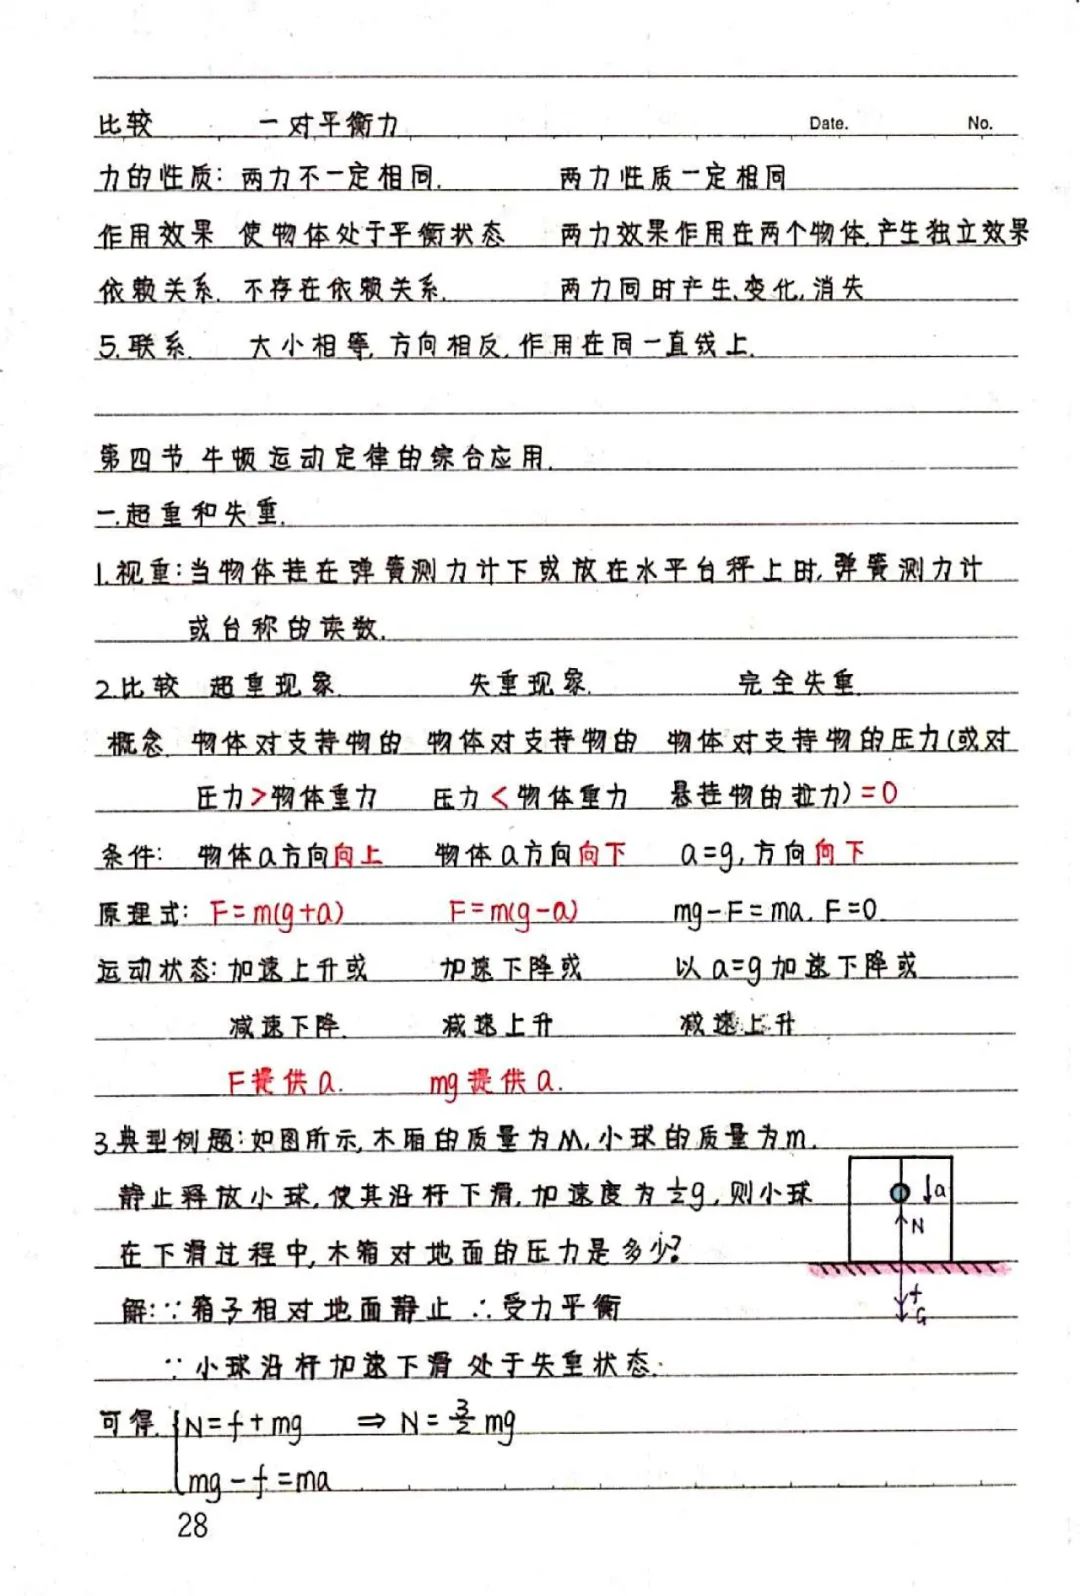 比较 一对平衡力 Date. No.
力的性质: 两力不一定相同. 两力性质一定相同
作用效果 使物体处于平衡状态 两力效果作用在两个物体,产生独立效果
依赖关系. 不存在依赖关系. 两力同时产生、变化,消失
5.联系. 大小相等,方向相反,作用在同一直线上.
第四节 牛顿运动定律的综合应用.
一.超重和失重.
1.视重:当物体挂在弹簧测力计下或放在水平台秤上时,弹簧测力计
或台称的读数.
2.比较 超重现象. 失重现象. 完全失重.
概念 物体对支持物的 物体对支持物的 物体对支持物的压力(或对
压力>物体重力 压力<物体重力 悬挂物的拉力)=0
条件: 物体a方向向上 物体a方向向下 a=g,方向向下
原理式: F=m(g+a) F=m(g-a) mg-F=ma. F=0.
运动状态:加速上升或 加速下降或 以a=g加速下降或
减速下降. 减速上升 减速上升
F提供a. mg提供a.
3.典型例题:如图所示,木箱的质量为M,小球的质量为m.
静止释放小球,使其沿杆下滑,加速度为½g,则小球
a
在下滑过程中,木箱对地面的压力是多少?
N
解:∵箱子相对地面静止 ∴受力平衡
f
G
∵小球沿杆加速下滑 处于失重状态.
可得. {N=f+mg ⇒ N=3/2 mg
mg-f=ma
28